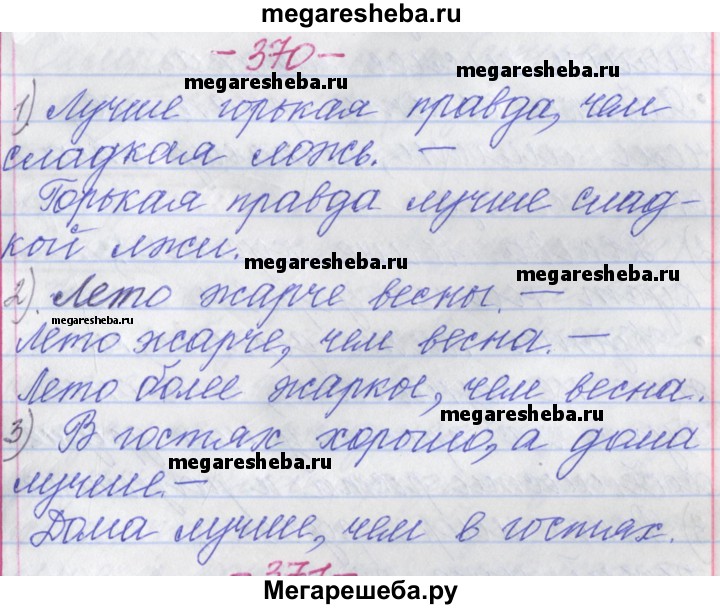 megaresheba.ru
- 370 -
megaresheba.ru
megaresheba.ru
1) Лучше горькая правда, чем
сладкая ложь. —
Горькая правда лучше слад-
кой лжи.
megaresheba.ru
megaresheba.ru
2). Лето жарче весны. —
megaresheba.ru
Лето жарче, чем весна. —
Лето более жаркое, чем весна.
megaresheba.ru
3) В гостях хорошо, а дома
megaresheba.ru
лучше. —
Дома лучше, чем в гостях.
- 371 -
Мегарешеба.ру